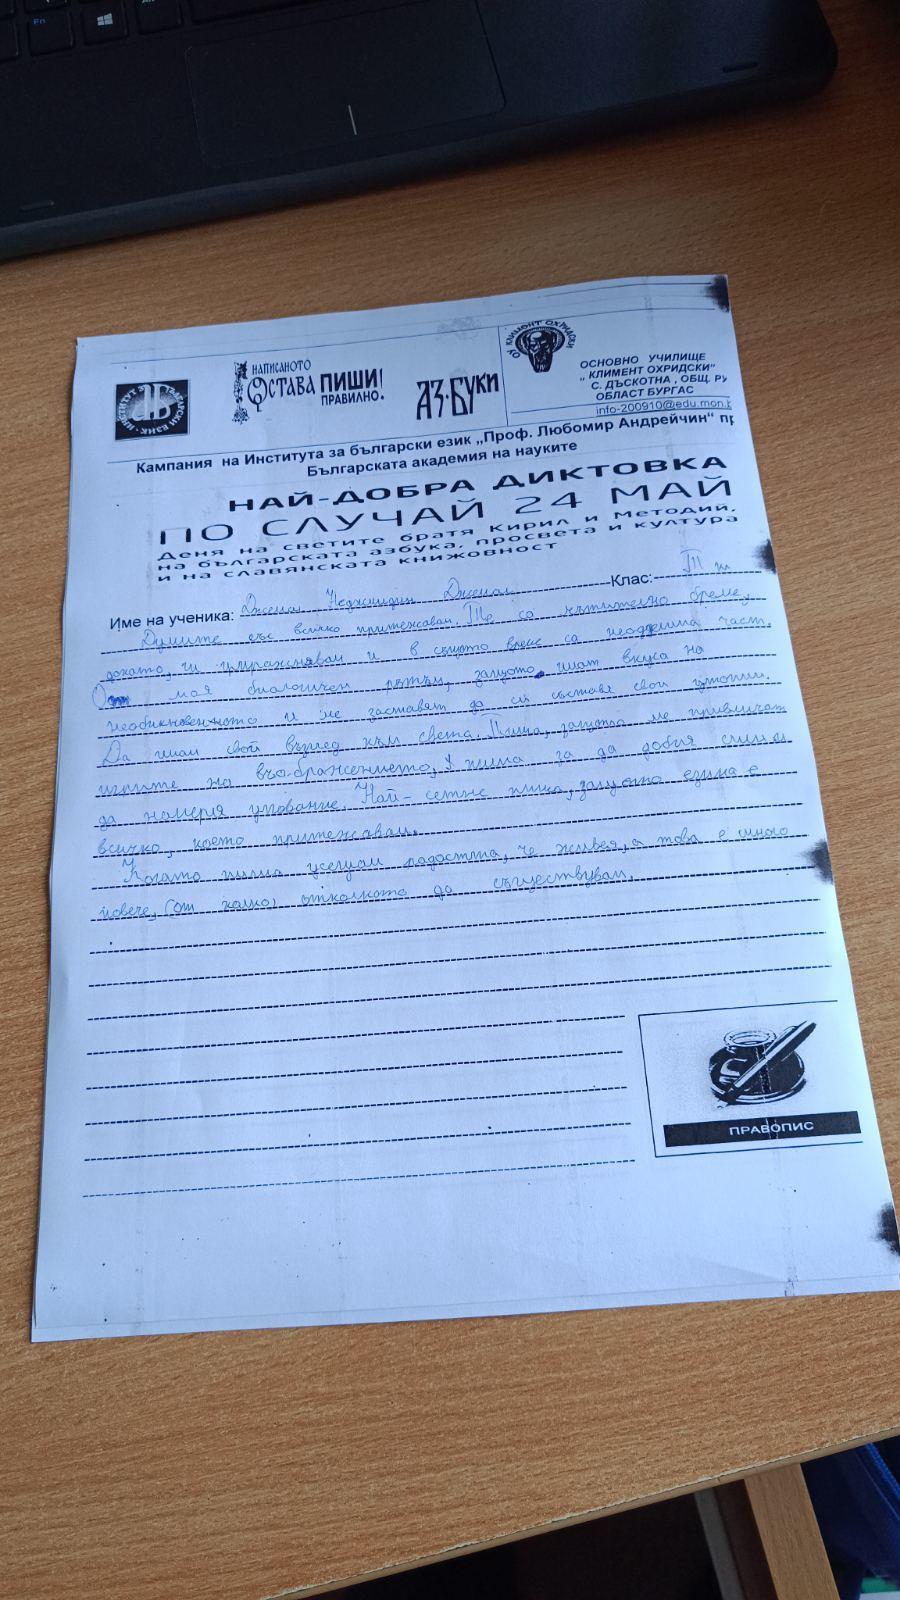 Fn
Alt
ИНСТИТУТ ЗА БЪЛГАРСКИ ЕЗИК
НАПИСАНОТО
ОСТАВА ПИШИ!
ПРАВИЛНО.
АЗ·БУКИ
ОУ КЛИМЕНТ ОХРИДСКИ
ОСНОВНО УЧИЛИЩЕ
" КЛИМЕНТ ОХРИДСКИ"
С. ДЪСКОТНА , ОБЩ. РУ
ОБЛАСТ БУРГАС
info-200910@edu.mon.b
Кампания на Института за български език „Проф. Любомир Андрейчин“ пр
Българската академия на науките
НАЙ-ДОБРА ДИКТОВКА
ПО СЛУЧАЙ 24 МАЙ
Деня на светите братя Кирил и Методий,
на българската азбука, просвета и култура
и на славянската книжовност
Име на ученика: Джелил Неджмидин Джелил Клас:
Думите със всичко притежавам. Те са мъчително бреме,
докато, ги упражнявам и в същото време са неоделима част.
От моя биологичен ритъм, защото имат вкуса на
необикновенното и ме заставят да си съставя свои утопии.
Да имам свой възглед към света. Пиша, защото ме привличат
игрите на въображението, пиша за да добия смисъл
да намеря упование. Най-сетне пиша, защото езика е
всичко, което притежавам.
Когато пиша усещам радостта, че живея, а това е много
повече, (от колко) отколкото да съществувам.
ПРАВОПИС